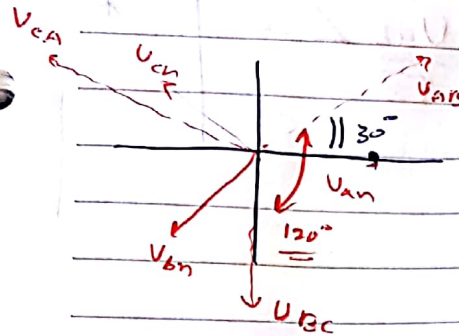 VCA
Vcn
VAB
30°
Van
120°
Vbn
VBC